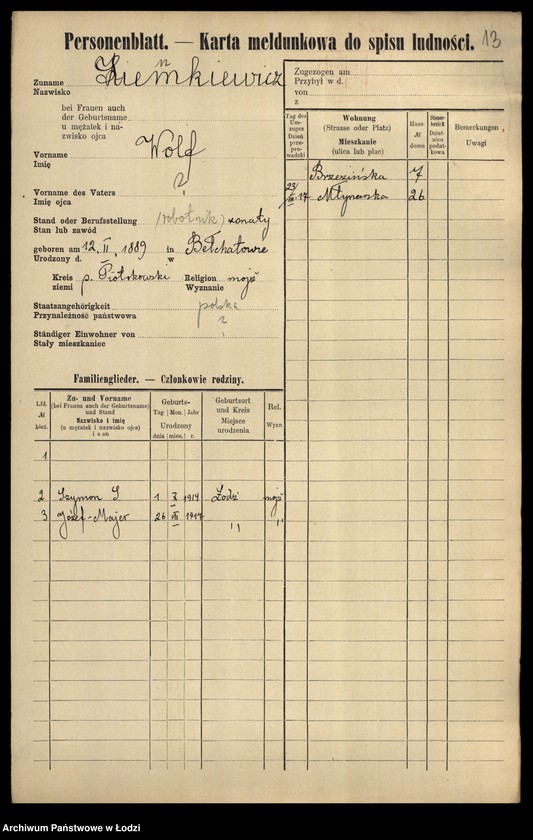 Personenblatt. — Karta meldunkowa do spisu ludności. 13
Zuname
Nazwisko
bei Frauen auch
der Geburtsname
u mężatek i na-
zwisko ojca
Vorname Wolf
Imię
Vorname des Vaters ?
Imię ojca
Stand oder Berufsstellung (robotnik) żonaty
Stan lub zawód
geboren am 12. II. 1889 in Bełchatowie
Urodzony d. w
Kreis p. Piotrkowski Religion mojż
ziemi Wyznanie
Staatsangehörigkeit polska
Przynależność państwowa
Ständiger Einwohner von ?
Stały mieszkaniec
Zugezogen am
Przybył w d.
von
z
Tag des Um-zuges Dzień przepro-wadzki
Wohnung
(Strasse oder Platz)
Mieszkanie
(ulica lub plac)
Haus №
domu
Bemerkungen
Uwagi
Brzezińska 7
17 Młynarska 26
Familienglieder. — Członkowie rodziny.
Lfd. № bież.
Zu- und Vorname
(bei Frauen auch der Geburtsname)
und Stand
Nazwisko i imię
(u mężatek i nazwisko ojca)
i stan
Geburts-
Tag Mon. Jahr
Urodzony
dnia mies. r.
Geburtsort
und Kreis
Miejsce
urodzenia
Rel.
Wyzn.
1
2 Szymon S 1 X 1914 Łódź mojż
3 Józef-Majer 26 1917 " "
Archiwum Państwowe w Łodzi